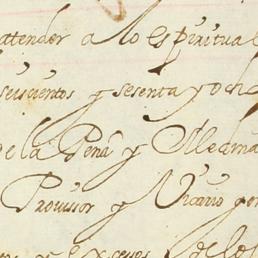 attender a lo espiritual
seiscientos y sesenta y ocho
de la Pená y Aleman
Prouissor y Vicario gen
excessos de los